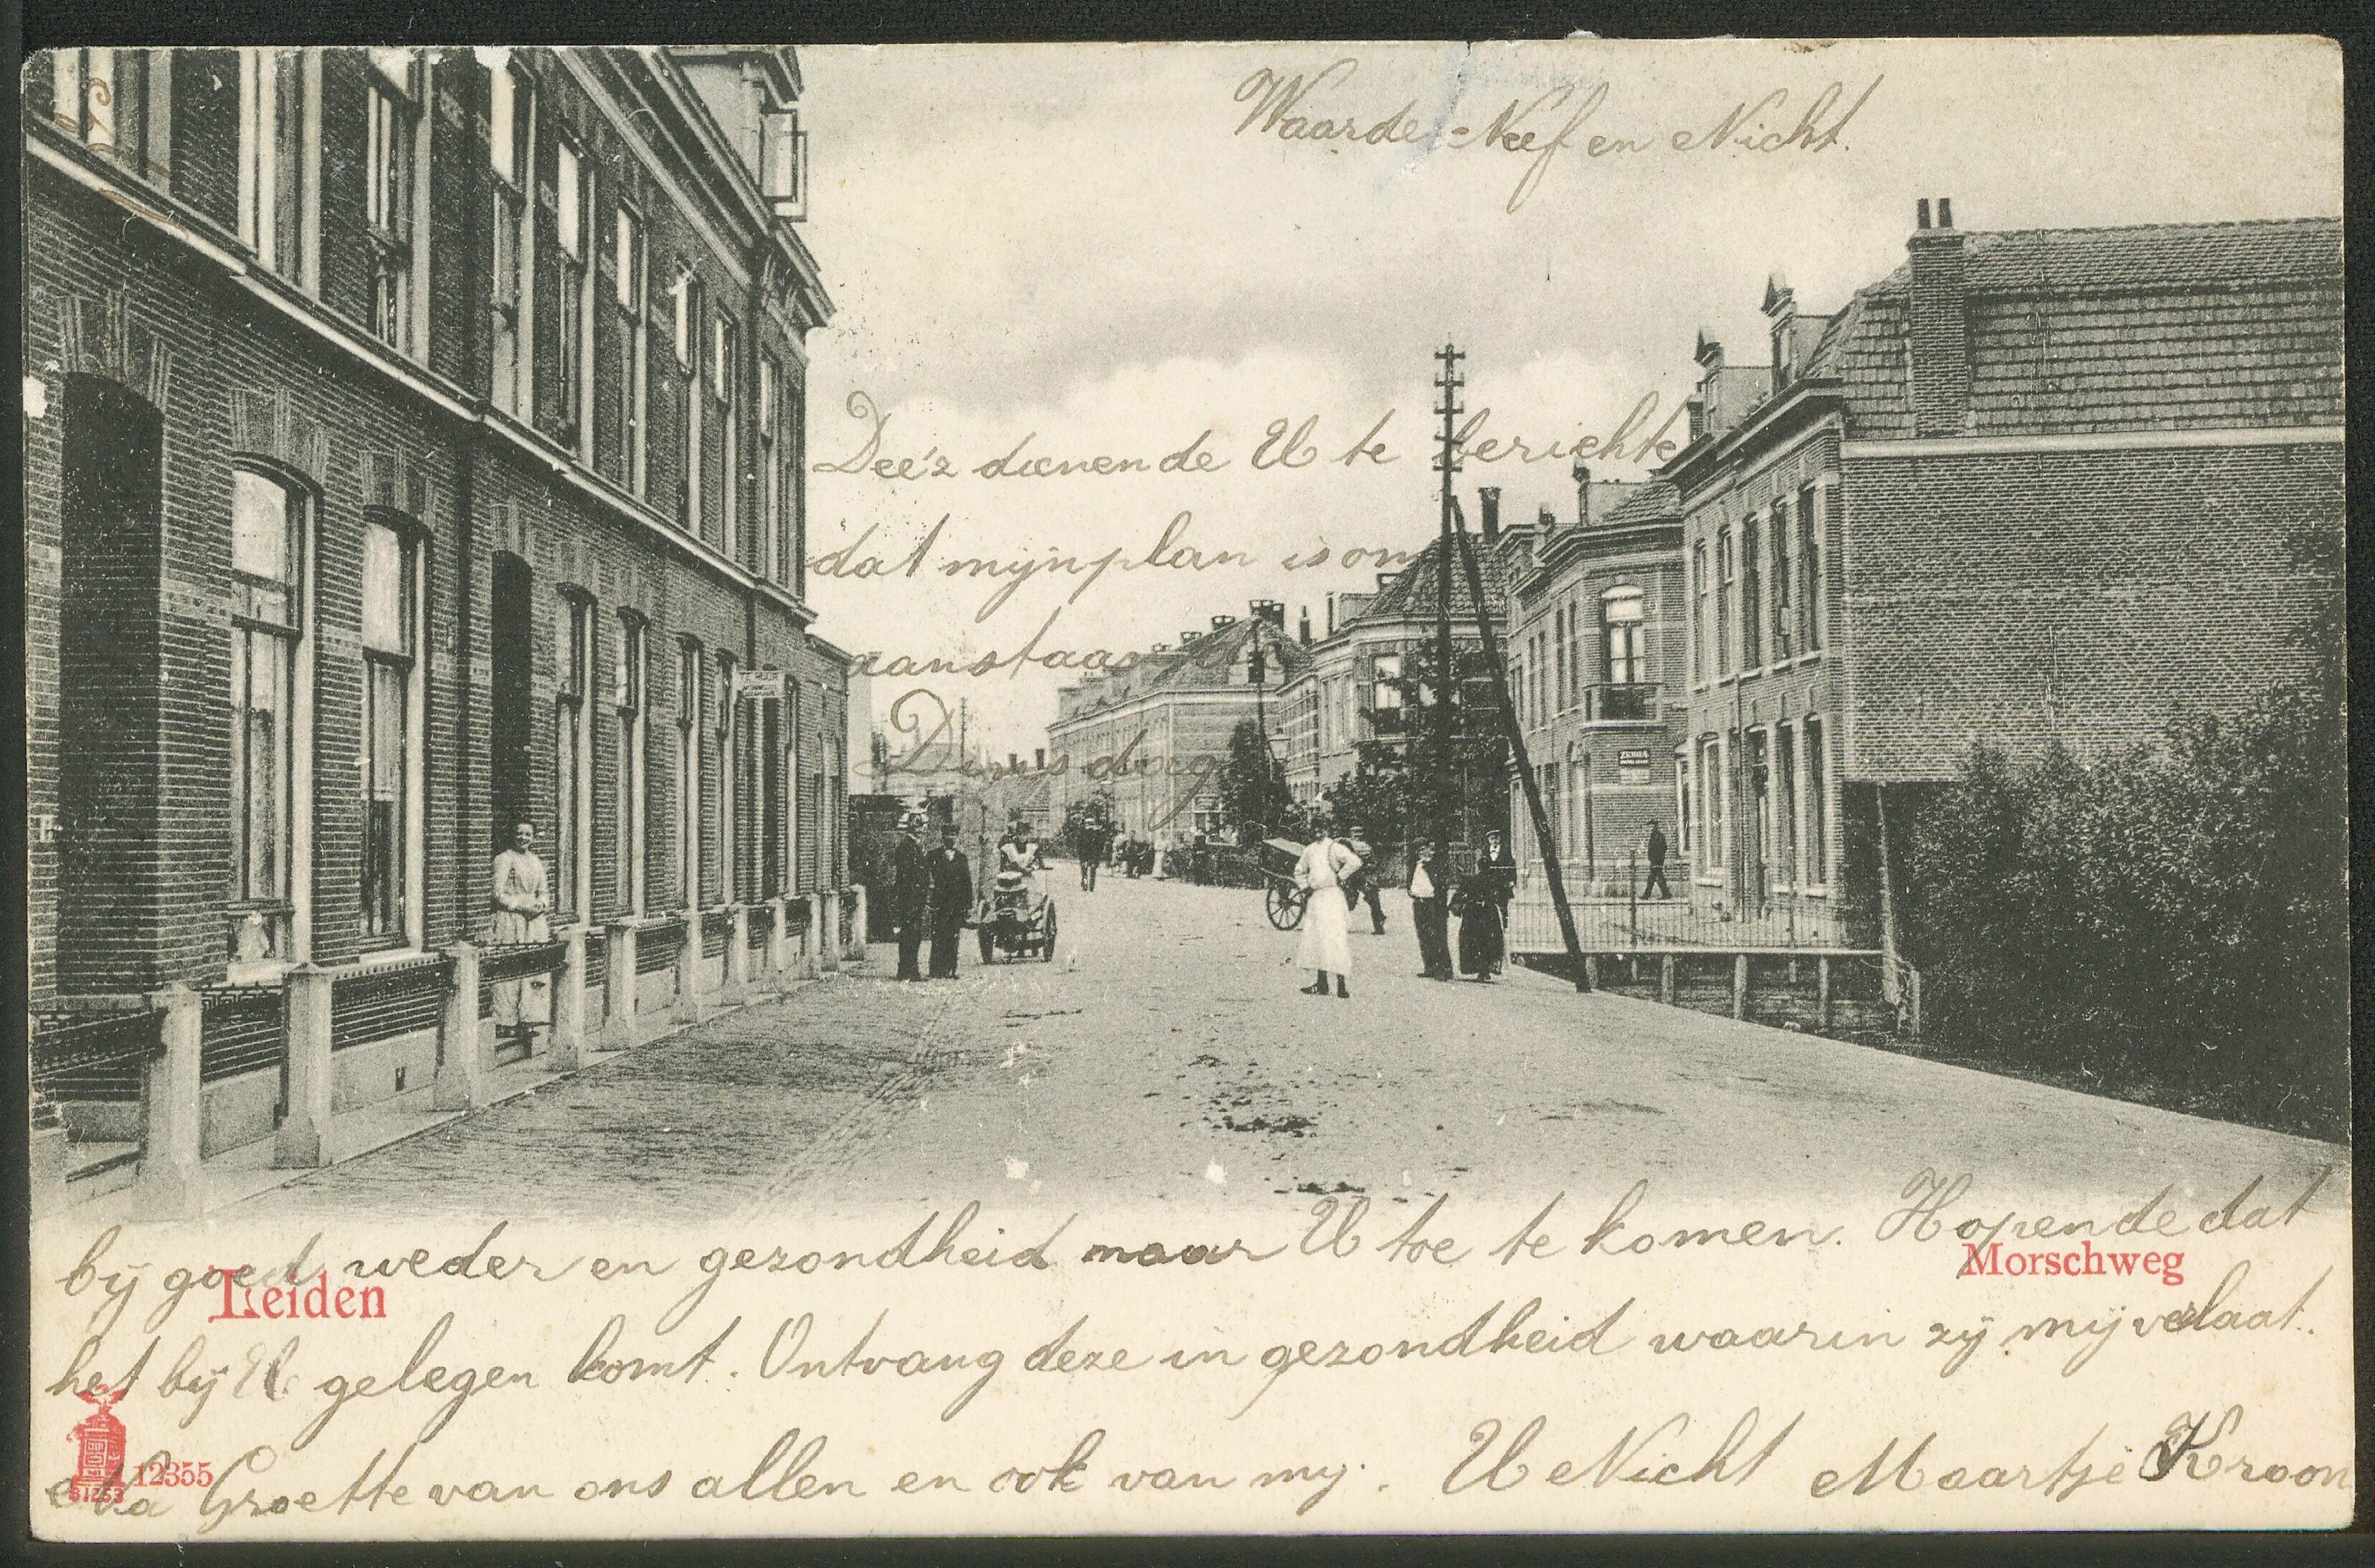 Waarde Neef en Nicht.
Dee'z dienende U te berichte
dat mijn plan is om
aanstaande
Dinsdag
bij goed weder en gezondheid naar U toe te komen. Hopende dat
Leiden
Morschweg
het bij U gelegen komt. Ontvang deze in gezondheid waarin zij mij verlaat.
12355
Na Groette van ons allen en ook van mij. U Nicht Maartje Kroon